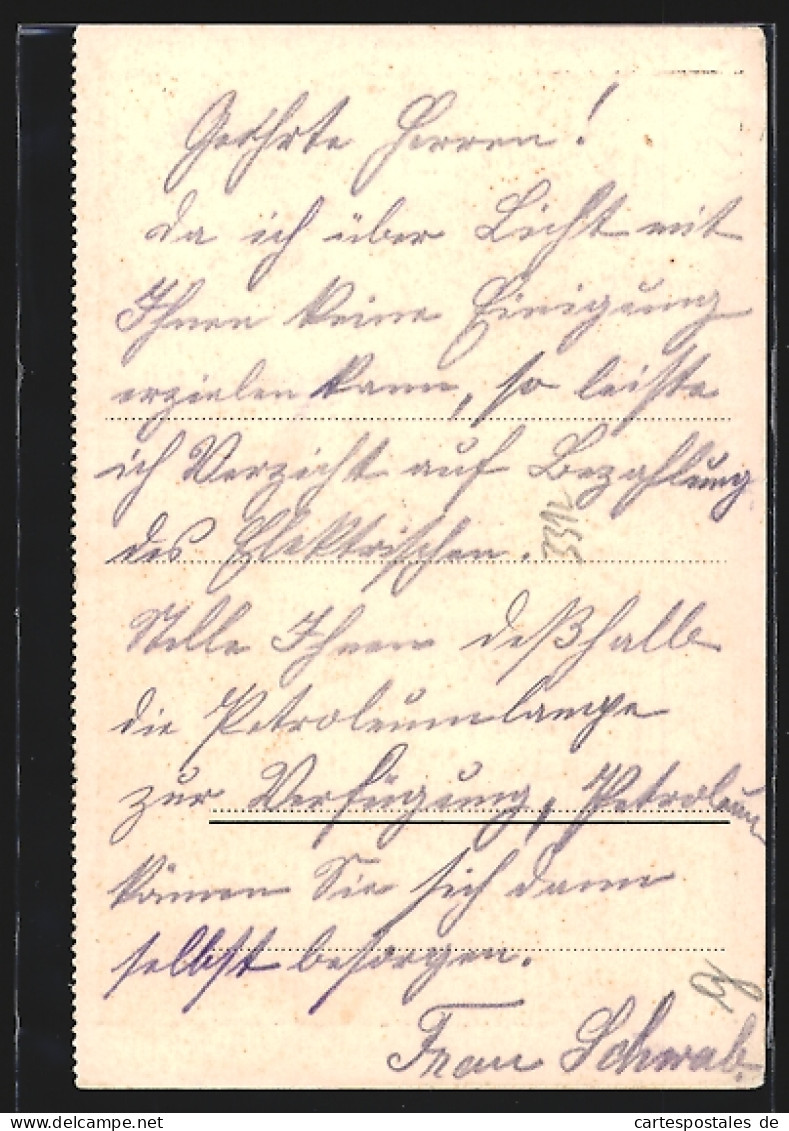 Geehrte Herren!
da ich über Licht mit
Ihnen keine Einigung
erzielen kann, so leiste
ich Verzicht auf Bezahlung
des Elektrischen.
Stelle Ihnen deßhalb
die Petroleumlampe
zur Verfügung, Petroleum
können Sie sich dann
selbst besorgen.
Frau Schwab.
www.cartespostales.de cartespostales de